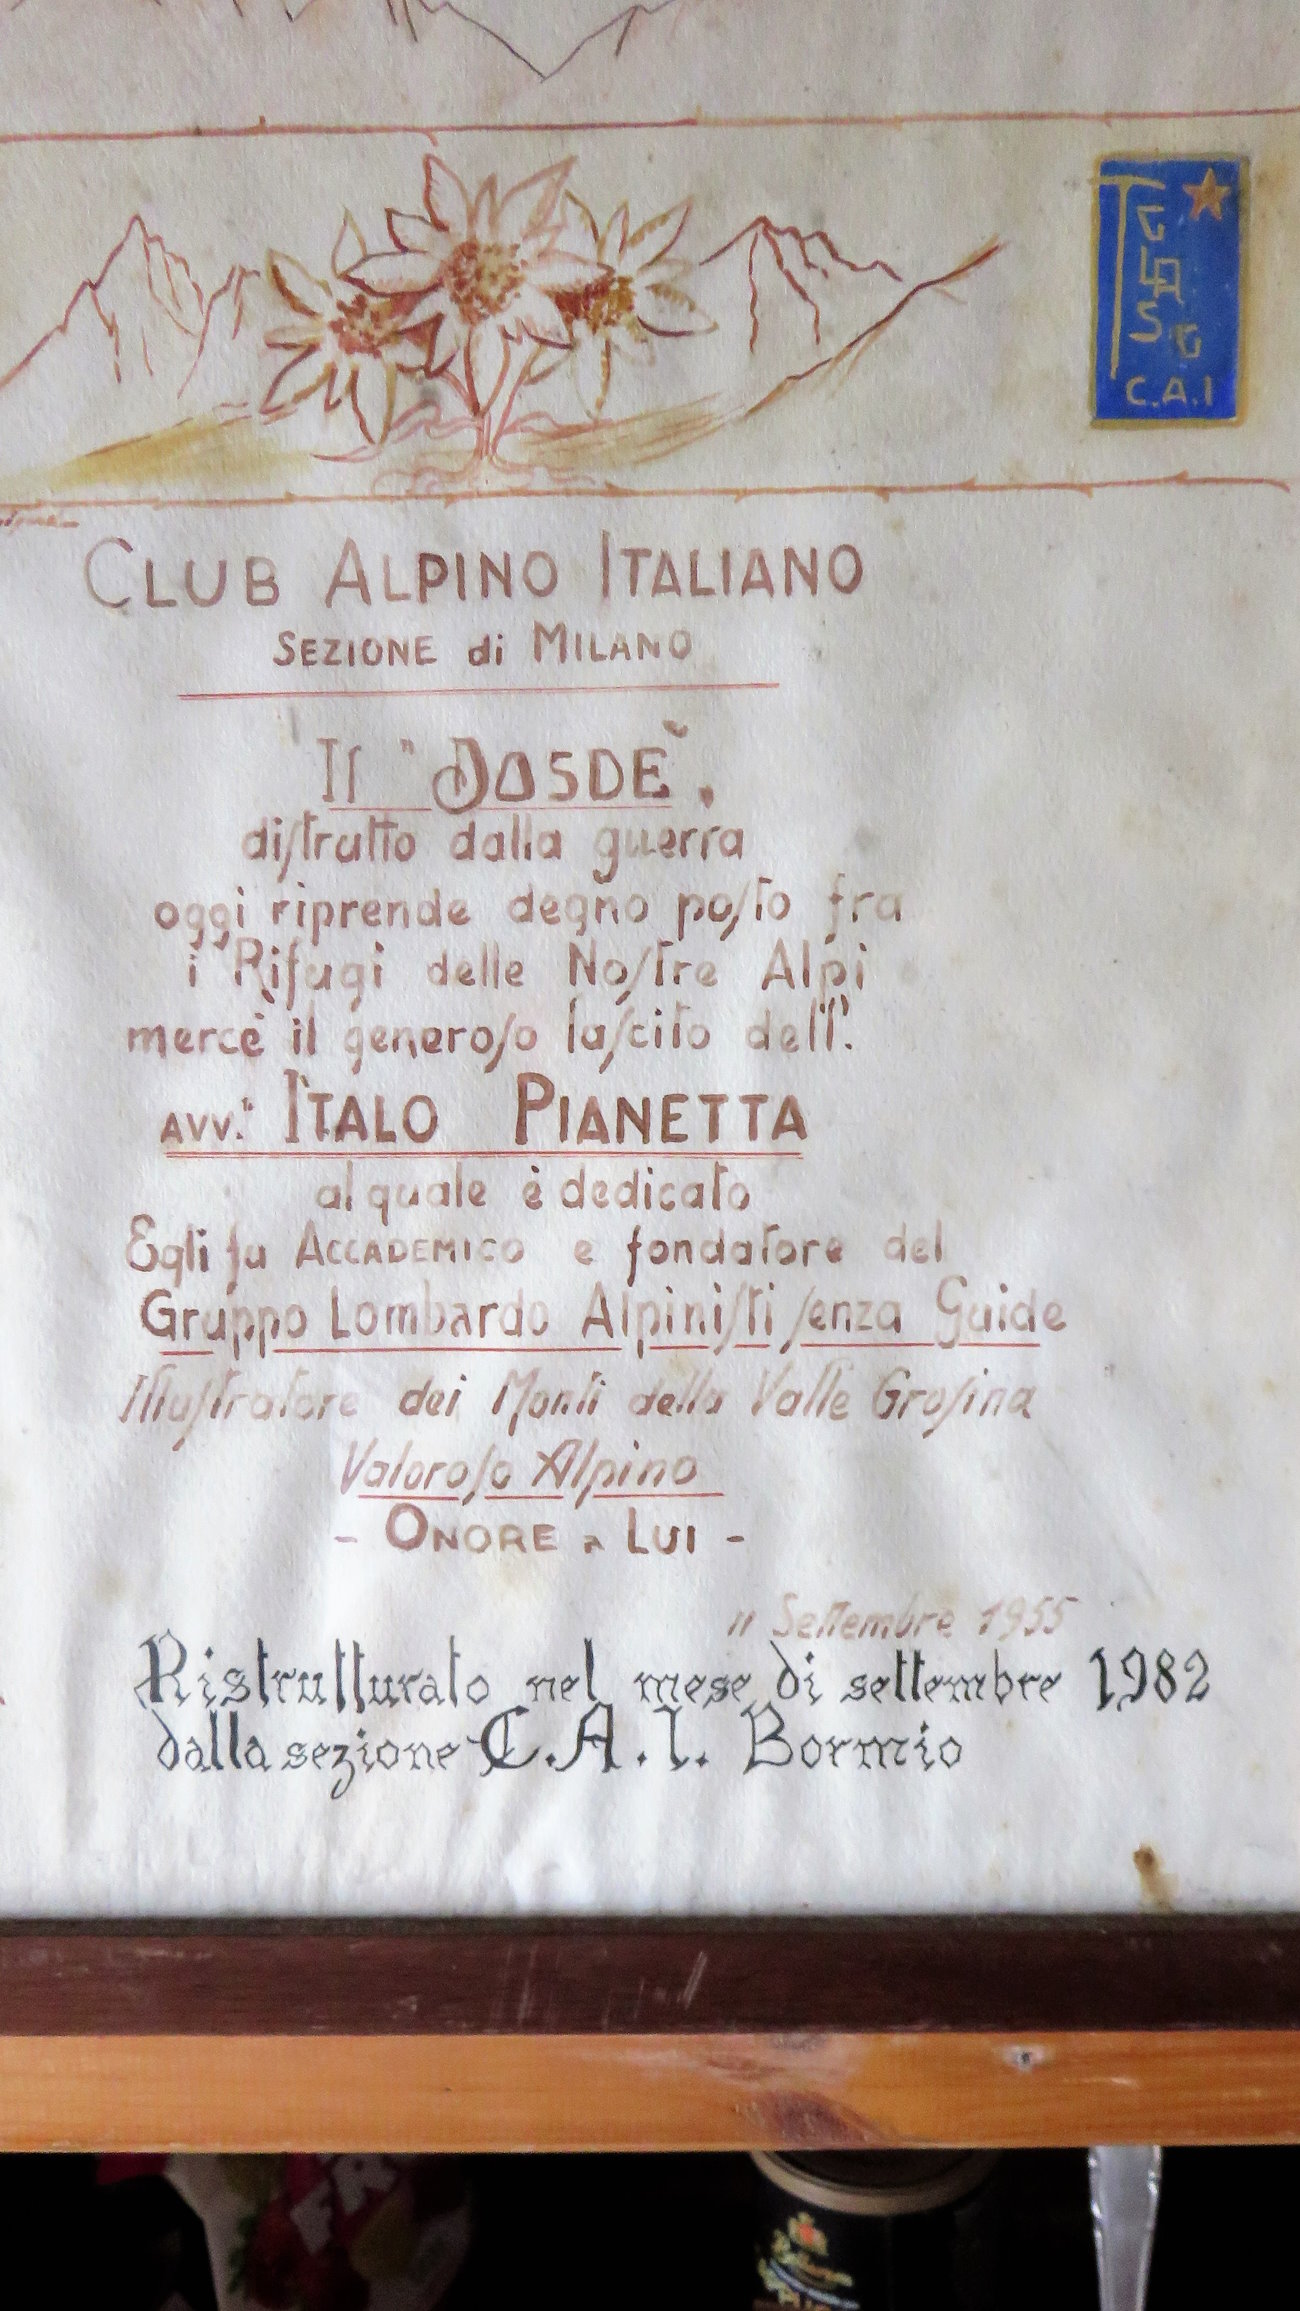 C.A.I
CLUB ALPINO ITALIANO
SEZIONE di MILANO
Il "DOSDÈ".
distrutto dalla guerra
oggi riprende degno posto fra
i Rifugi delle Nostre Alpi
mercè il generoso lascito dell'.
AVV." ITALO PIANETTA
al quale è dedicato
Egli fu ACCADEMICO e fondatore del
Gruppo Lombardo Alpinisti senza Guide
Illustratore dei Monti della Valle Grosina
Valoroso Alpino
- ONORE a LUI -
11 Settembre 1955
Ristrutturato nel mese di settembre 1982
dalla sezione C.A.I. Bormio